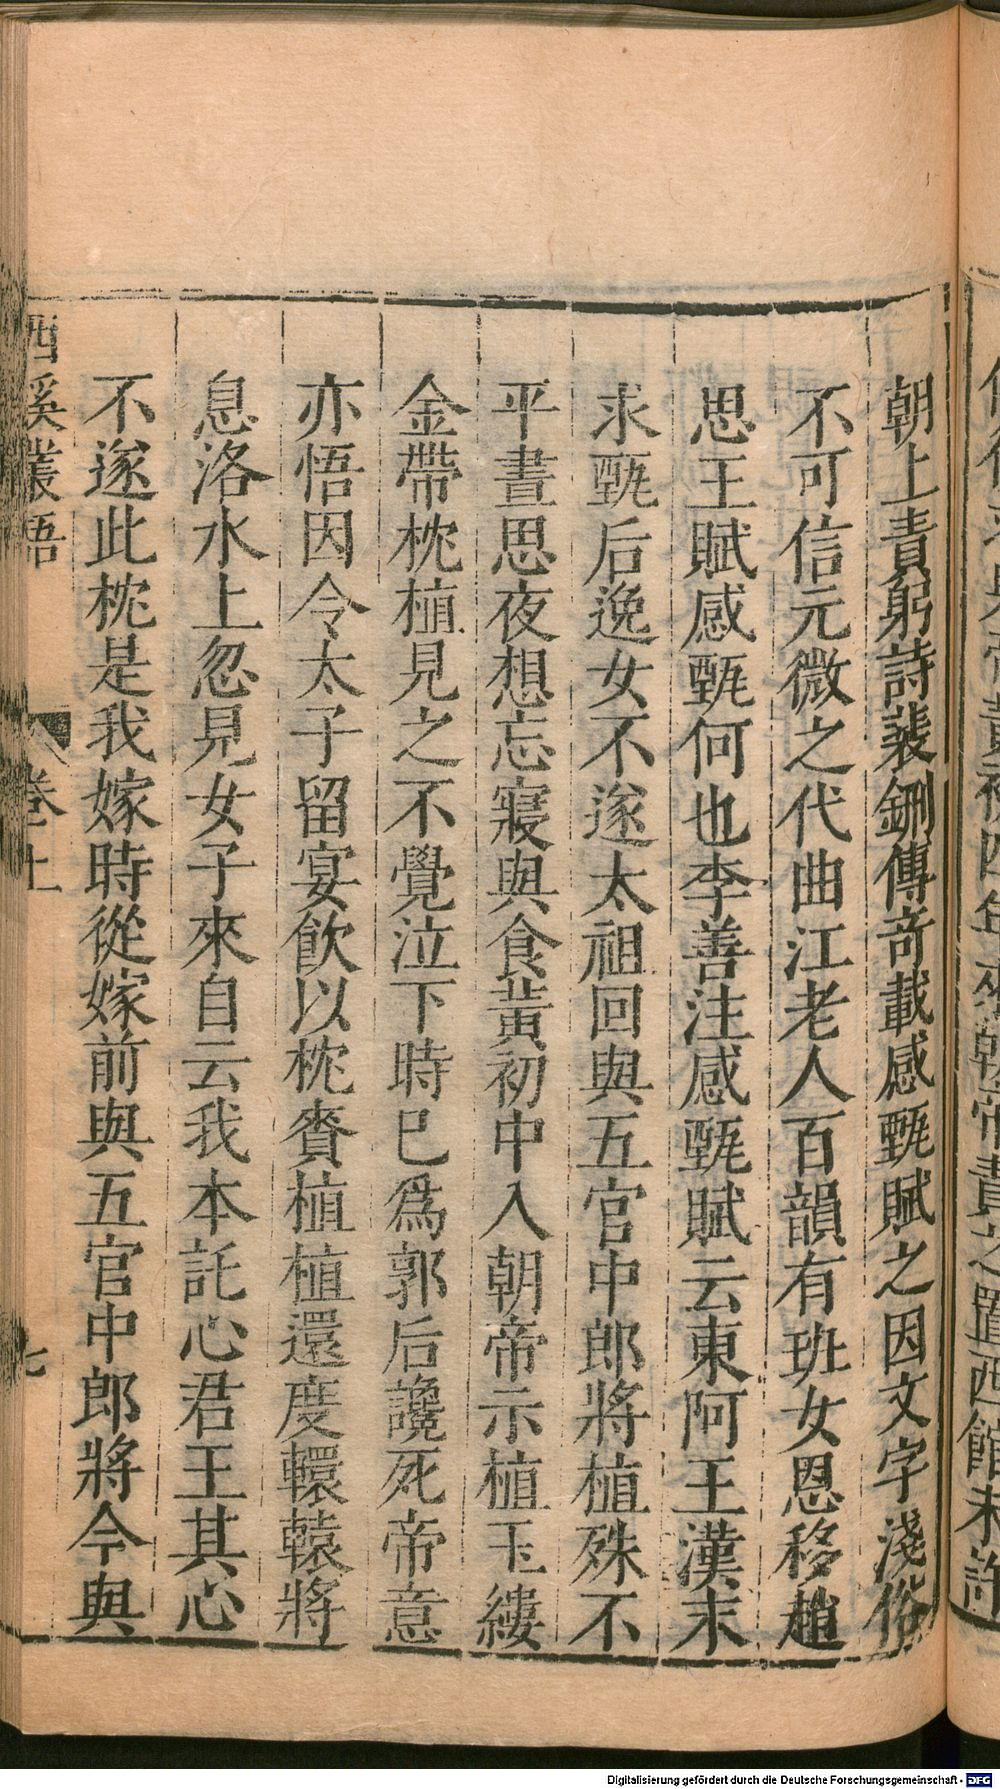 朝上責躬詩裴鉶傳奇載感甄賦之因文字淺俗
不可信元微之代曲江老人百韻有班女恩移趙
思王賦感甄何也李善注感甄賦云東阿王漢末
求甄后逸女不遂太祖回與五官中郎將植殊不
平晝思夜想忘寢與食黃初中入朝帝示植玉縷
金帶枕植見之不覺泣下時已爲郭后讒死帝意
亦悟因令太子留宴飲以枕賚植植還度轘轅將
息洛水上忽見女子來自云我本託心君王其心
不遂此枕是我嫁時從嫁前與五官中郎將今與
西溪叢語 卷上 七
Digitalisierung gefördert durch die Deutsche Forschungsgemeinschaft - DFG